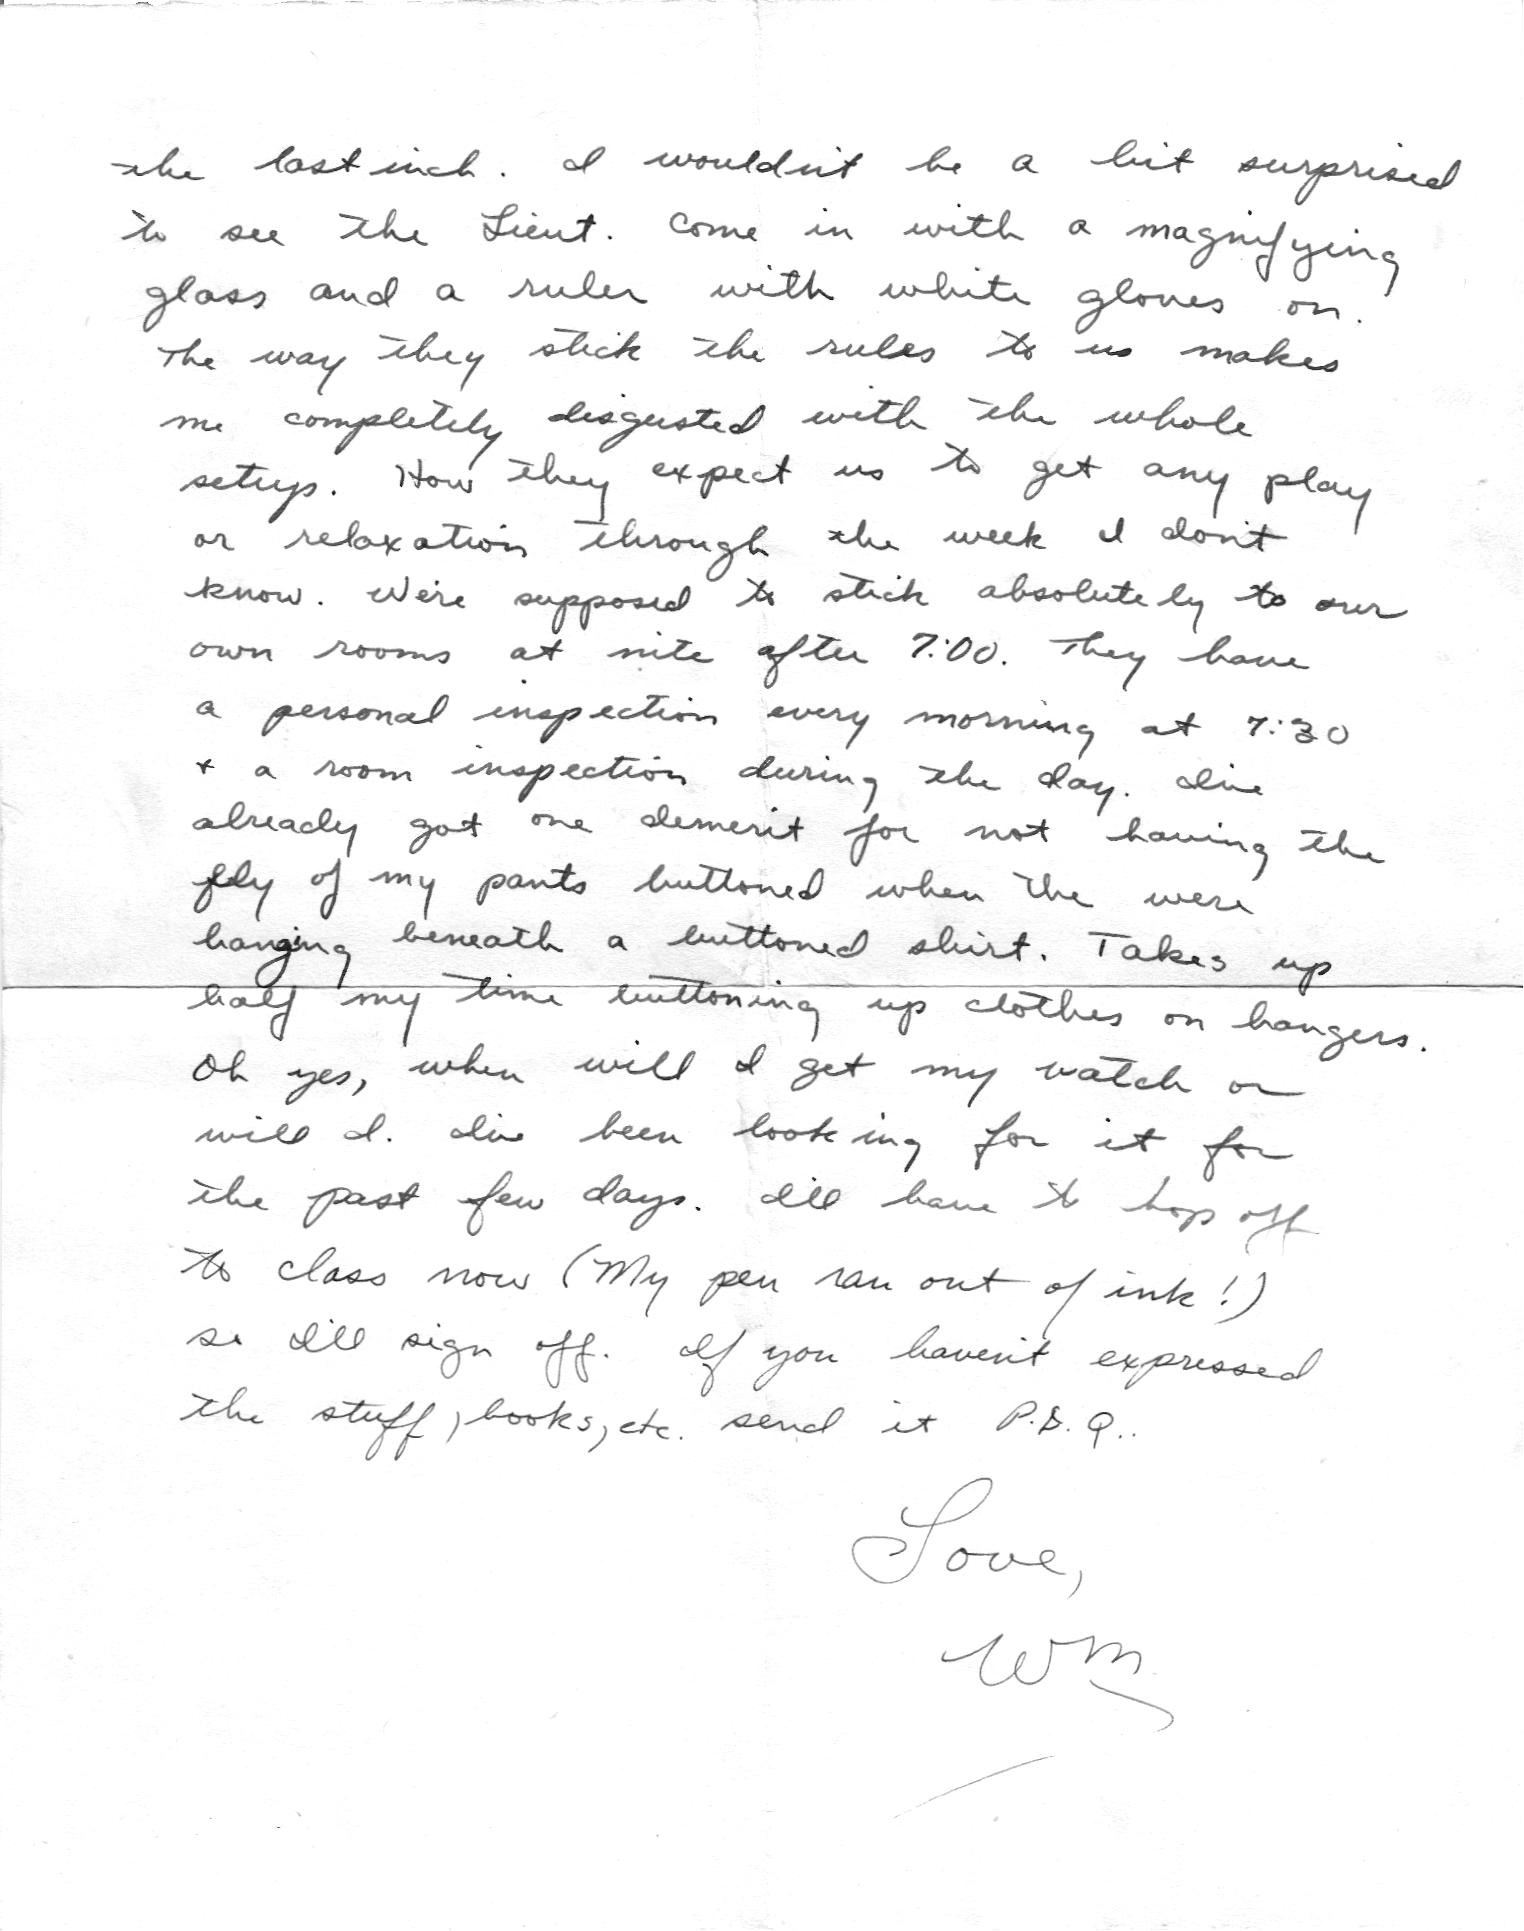 the last inch. I wouldn't be a bit surprised
to see the Lieut. come in with a magnifying
glass and a ruler with white gloves on.
The way they stick the rules to us makes
me completely disgusted with the whole
setup. How they expect us to get any play
or relaxation through the week I don't
know. We're supposed to stick absolutely to our
own rooms at nite after 7:00. They have
a personal inspection every morning at 7:30
+ a room inspection during the day. I've
already got one demerit for not having the
fly of my pants buttoned when the were
hanging beneath a buttoned shirt. Takes up
half my time buttoning up clothes on hangers.
Oh yes, when will I get my watch or
will I. I've been looking for it for
the past few days. I'll have to hop off
to class now (My pen ran out of ink!)
so I'll sign off. If you haven't expressed
the stuff, books, etc. send it P.D.Q..
Love,
Wm